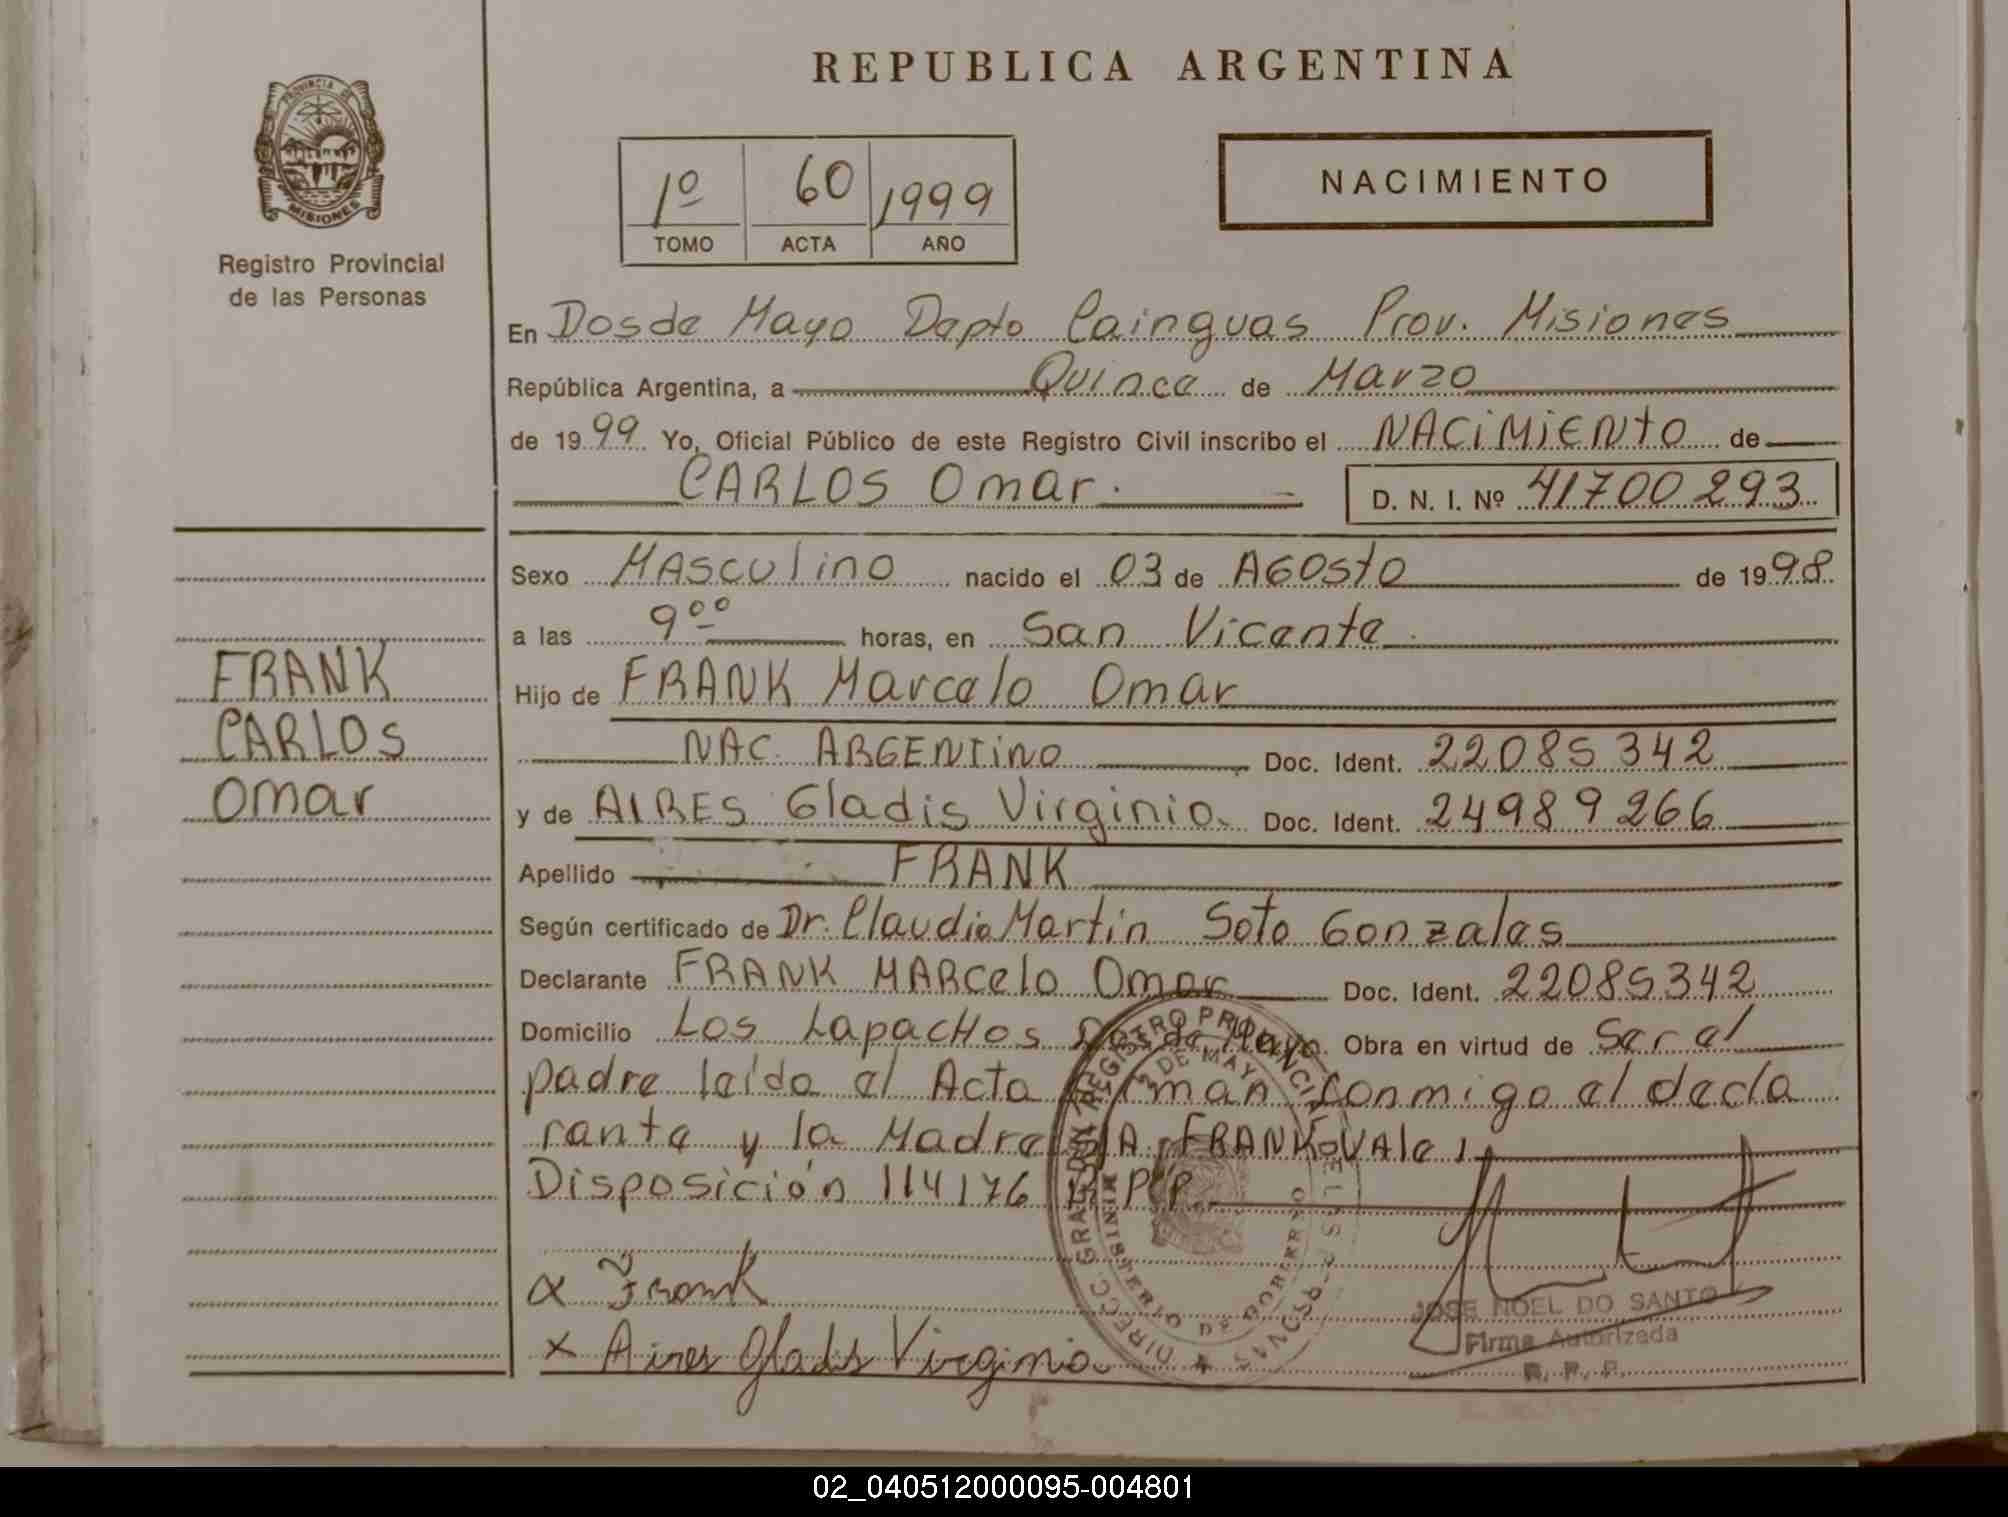 REPUBLICA ARGENTINA
PROVINCIA DE
MISIONES
Registro Provincial
de las Personas
1º 60 1999
TOMO ACTA AÑO
NACIMIENTO
En Dos de Mayo Depto Cainguas Prov. Misiones
República Argentina, a Quince de Marzo
de 1999 Yo, Oficial Público de este Registro Civil inscribo el NACIMIENTO de
CARLOS Omar. D. N. I. Nº 41700293
Sexo MASCULINO nacido el 03 de AGOSTO de 1998
a las 9ºº horas, en San Vicente.
Hijo de FRANK Marcelo Omar
NAC. ARGENTINO Doc. Ident. 22085342
y de AIRES Gladis Virginia Doc. Ident. 24989266
Apellido FRANK
Según certificado de Dr. Claudio Martin Soto Gonzales
Declarante FRANK MARCelo Omar Doc. Ident. 22085342
Domicilio Los LapacHos Dos de Mayo Obra en virtud de Ser el
padre leído el Acta firman conmigo el decla
rante y la Madre S/A FRANK VAle
Disposición 114/76
FRANK
CARLOS
Omar
x Frank
x Aires Gladis Virginia
DIRECC. GRAL. DEL REGISTRO PROVINCIAL DE LAS PERSONAS
2 DE MAYO
MINISTERIO DE GOBIERNO
JOSE NOEL DO SANTO
Firma Autorizada
R. P. P.
02_040512000095-004801